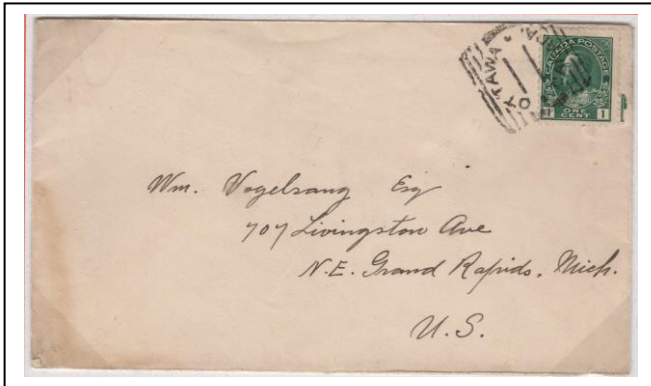 CANADA POSTAGE
1 ONE CENT 1
Wm. Vogelsang Esq
707 Livingston Ave
N.E. Grand Rapids, Mich.
U.S.